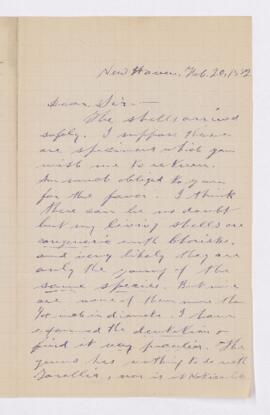 New Haven, Feb. 20, 1882
Dear Sir:—
The shells arrived
safely. I suppose these
are specimens which you
wish me to return.
Am much obliged to you
for the favor. I think
there can be no doubt
but my living shells are
congeneric with
and very likely they are
only the young of the
same species. But mine
are none of them more than
in diameter. I have
examined the dentition &
find it very peculiar. The
genus has nothing to do with
Torellia, nor is it